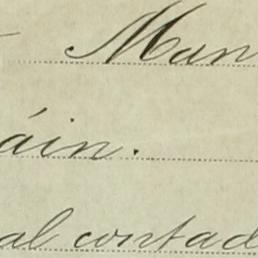 Man
áin.
al contad